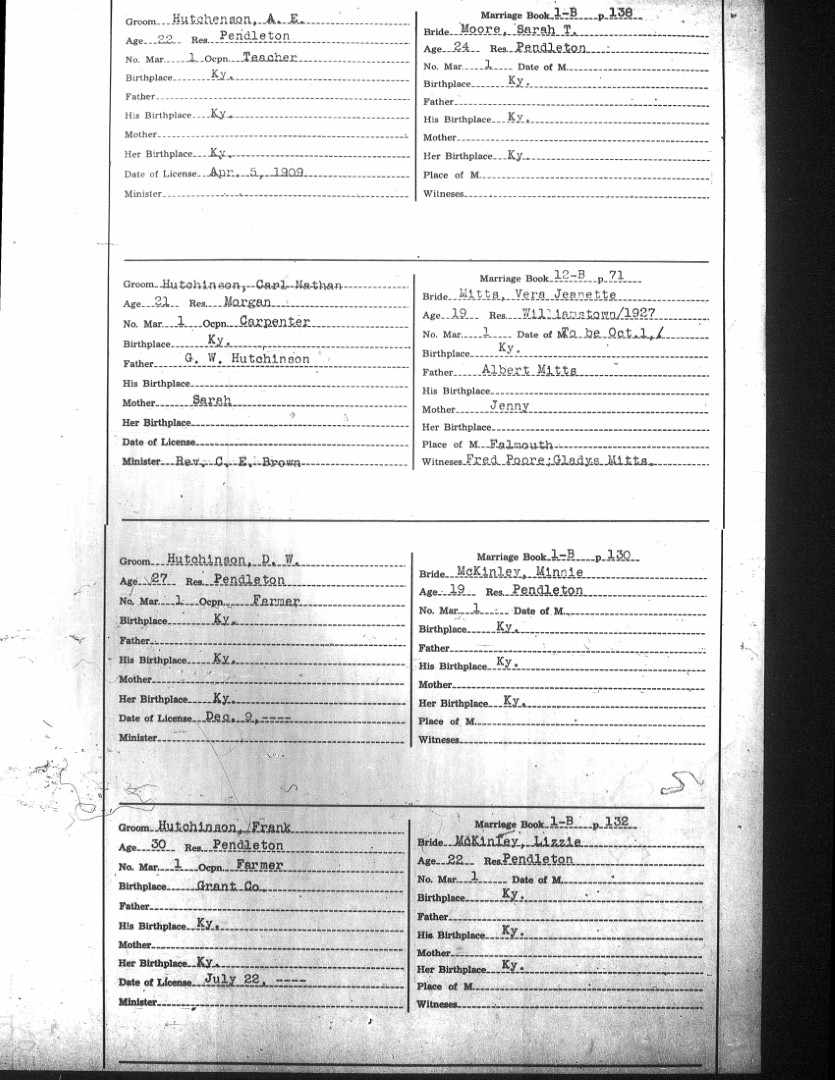 Groom Hutchenson, A. E.
Age 22 Res. Pendleton
No. Mar. 1 Ocpn. Teacher
Birthplace Ky.
Father
His Birthplace Ky.
Mother
Her Birthplace Ky.
Date of License Apr. 5, 1909
Minister
Marriage Book 1-B p. 138
Bride Moore, Sarah T.
Age 24 Res. Pendleton
No. Mar. 1 Date of M.
Birthplace Ky.
Father
His Birthplace Ky.
Mother
Her Birthplace Ky.
Place of M.
Witneses
Groom Hutchinson, Carl Nathan
Age 21 Res. Morgan
No. Mar. 1 Ocpn. Carpenter
Birthplace Ky.
Father G. W. Hutchinson
His Birthplace
Mother Sarah
Her Birthplace
Date of License
Minister Rev. C. E. Brown
Marriage Book 12-B p. 71
Bride Mitts, Vera Jeanette
Age 19 Res. Williamstown/1927
No. Mar. 1 Date of M To be Oct.1,/
Birthplace Ky.
Father Albert Mitts
His Birthplace
Mother Jenny
Her Birthplace
Place of M. Falmouth
Witneses Fred Poore;Gladys Mitts.
Groom Hutchinson, D. W.
Age 27 Res. Pendleton
No. Mar. 1 Ocpn. Farmer
Birthplace Ky.
Father
His Birthplace Ky.
Mother
Her Birthplace Ky.
Date of License Dec. 9,----
Minister
Marriage Book 1-B p. 130
Bride McKinley, Minnie
Age 19 Res. Pendleton
No. Mar. 1 Date of M.
Birthplace Ky.
Father
His Birthplace Ky.
Mother
Her Birthplace Ky.
Place of M.
Witneses
Groom Hutchinson, Frank
Age 30 Res. Pendleton
No. Mar. 1 Ocpn. Farmer
Birthplace Grant Co.
Father
His Birthplace Ky.
Mother
Her Birthplace Ky.
Date of License July 22, ----
Minister
Marriage Book 1-B p. 132
Bride McKinley, Lizzie
Age 22 Res. Pendleton
No. Mar. 1 Date of M.
Birthplace Ky.
Father
His Birthplace Ky.
Mother
Her Birthplace Ky.
Place of M.
Witneses